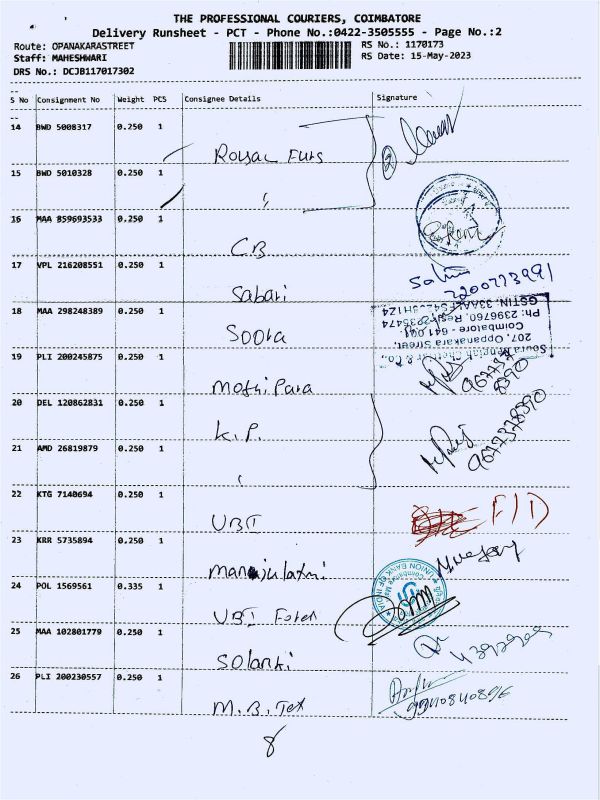 THE PROFESSIONAL COURIERS, COIMBATORE
Delivery Runsheet - PCT - Phone No.:0422-3505555 - Page No.:2
Route: OPANAKARASTREET RS No.: 1170173
Staff: MAHESHWARI RS Date: 15-May-2023
DRS No.: DCJB117017302
S No Consignment No Weight PCS Consignee Details Signature
14 BWD 5008317 0.250 1
Royal Furs
15 BWD 5010328 0.250 1
16 MAA 859693533 0.250 1
C.B
17 VPL 216208551 0.250 1
Sabari
18 MAA 298248389 0.250 1
Soora
19 PLI 200245875 0.250 1
Mothi Para
20 DEL 120862831 0.250 1
K.P.
21 AMD 26819879 0.250 1
9677378390
22 KTG 7140694 0.250 1
UBI
F/D
23 KRR 5735894 0.250 1
Manjulaxmi
24 POL 1569561 0.335 1
UBI Forex
UNION BANK OF INDIA
25 MAA 102801779 0.250 1
Solanki
26 PLI 200230557 0.250 1
M.B. Tex
8
207, Oppanakara Street,
Coimbatore - 641 001.